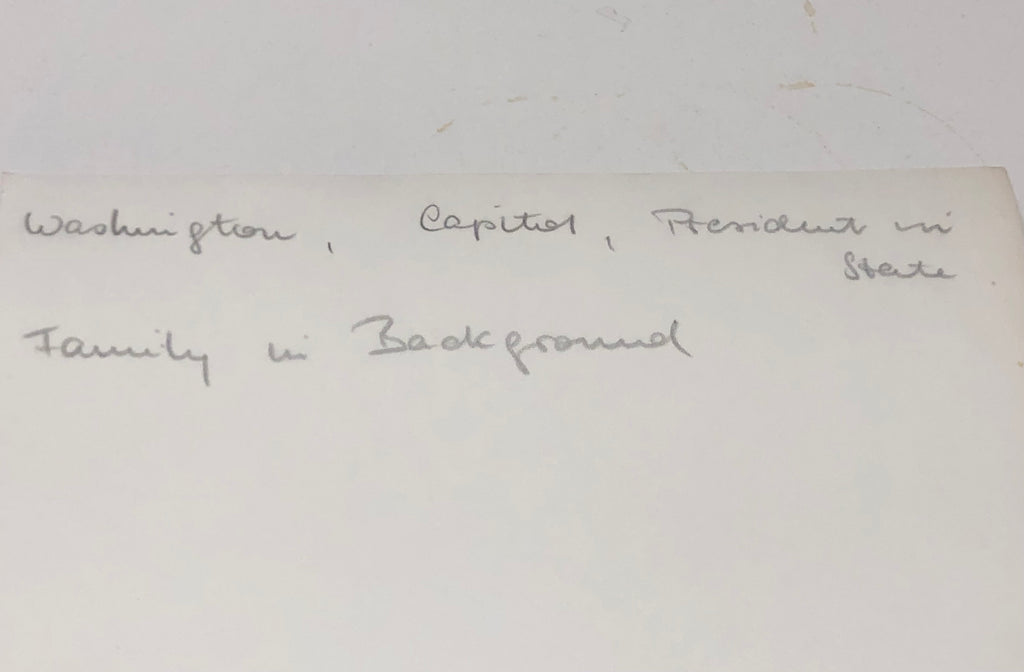 Washington, Capitol, President in
State
Family in Background